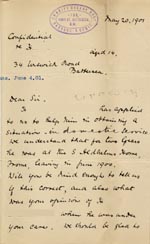 May 20, 1901
Confidential
H. F. Aged 14.
34 Warwick Road
Battersea.
June 4.01.
Dear Sir,
H. F. has applied
to us to help him in obtaining a
situation in domestic service
We understand that for two years
he was at the S. Home,
Frome leaving in June 1900.
Will you be kind enough to tell us
if this is correct, and also what
was your opinion of
when he was under
your care. We should be glad to